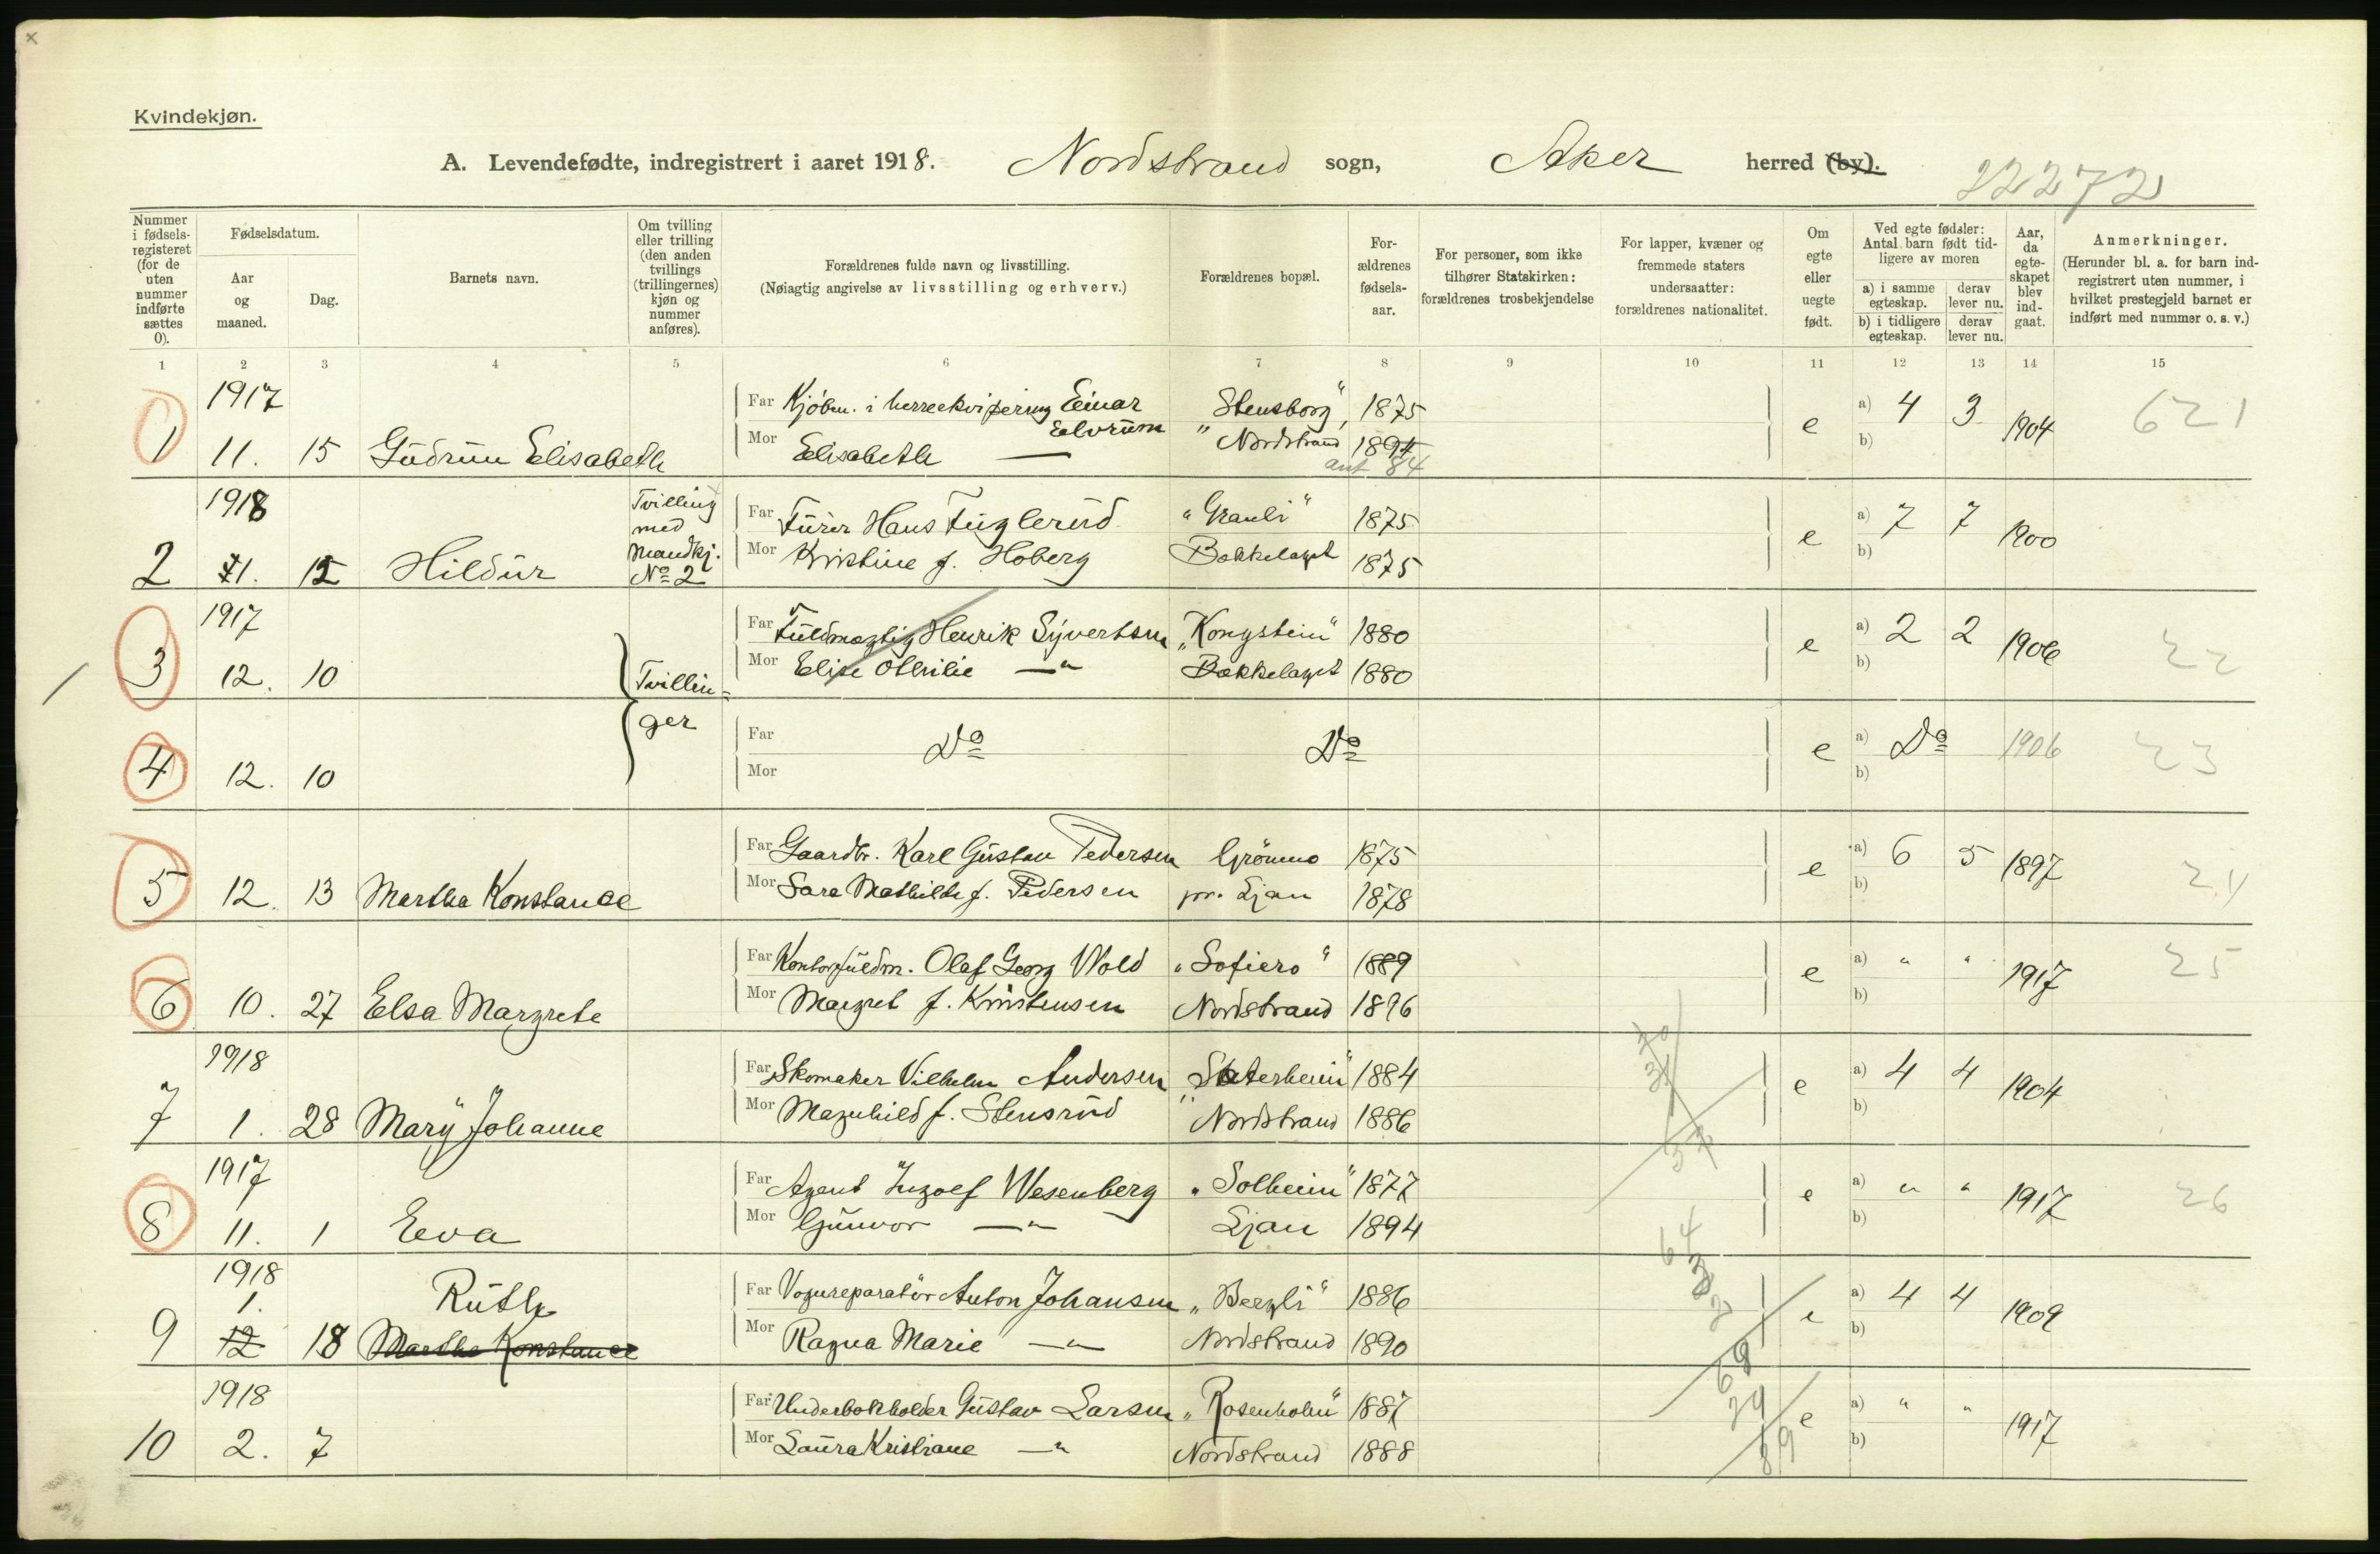 Kvindekjøn.
A. Levendefødte, indregistrert i aaret 1918. Nordstrand sogn, Aker herred (by).
22272
Nummer i fødselsregisteret (for de uten nummer indførte sættes 0).
Fødselsdatum.
Aar og maaned.
Dag.
Barnets navn.
Om tvilling eller trilling (den anden tvillings (trillingernes) kjøn og nummer anføres).
Forældrenes fulde navn og livsstilling.
(Nøiagtig angivelse av livsstilling og erhverv.)
Forældrenes bopæl.
For-ældrenes fødsels-aar.
For personer, som ikke tilhører Statskirken: forældrenes trosbekjendelse
For lapper, kvæner og fremmede staters undersaatter: forældrenes nationalitet.
Om egte eller uegte født.
Ved egte fødsler: Antal barn født tid-ligere av moren
a) i samme egteskap. derav lever nu.
b) i tidligere egteskap. derav lever nu.
Aar, da egte-skapet blev ind-gaat.
Anmerkninger.
(Herunder bl. a. for barn ind-registrert uten nummer, i hvilket prestegjeld barnet er indført med nummer o. s. v.)
1 2 3 4 5 6 7 8 9 10 11 12 13 14 15
1917 Far Kjøbm. i herreekvipering Einar "Stensborg", 1875 a) 4 3
Elvrum
1 11. 15 Gudrun Elisabeth Mor Elisabeth — Nordstrand 1894 e b) 1904 621
ant 84
1918 Tvilling med Mandkj. No 2 Far Furér Hans Fuglerud "Granli" 1875 a) 7 7
2 1. 15 Hildur Mor Kristine f. Hoberg Bækkelaget 1875 e b) 1900
1917 Far Fuldmægtig Henrik Syvertsen "Kongstein" 1880 a) 2 2
3 12. 10 Tvillin= Mor Elise Othilie —"— Bækkelaget 1880 e b) 1906 22
ger Far Do Do a) Do
4 12. 10 Mor e b) 1906 23
Far Gaardbr. Karl Gustav Pedersen Grönmo 1875 a) 6 5
5 12. 13 Martha Konstance Mor Sara Mathilde f. Pedersen pr. Ljan 1878 e b) 1897 24
Far Kontorfuldm. Olaf Georg Wold "Sofiero" 1889 a) " "
6 10. 27 Elsa Margrete Mor Margret f. Kristensen Nordstrand 1896 e b) 1917 25
1918 Far Skomaker Vilhelm Andersen "Sæterheim" 1884 a) 4 4
7 1. 28 Mary Johanne Mor Magnhild f. Stensrud Nordstrand 1886 e b) 1904
1917 Far Agent Ingolf Wesenberg "Solheim" 1877 a) " "
8 11. 1 Eva Mor Gunvor —"— Ljan 1894 e b) 1917 26
1918 Ruth Far Vognreparatör Anton Johansen "Bergli" 1886 a) 4 4
1.
9 12 18 Martha Konstance Mor Ragna Marie —"— Nordstrand 1890 e b) 1909
1918 Far Underbokholder Gustav Larsen "Rosenholm" 1887 a) " "
10 2. 7 Mor Laura Kristiane —"— Nordstrand 1888 e b) 1917